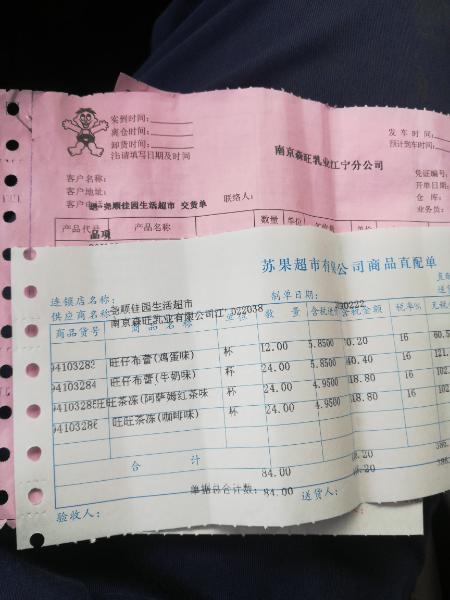 实到时间:
离仓时间:
卸货时间:
注请填写日期及时间
南京森旺乳业江宁分公司
发车时间:
预计到车时间:
客户名称:
客户地址:
客户电话
尧顺佳园生活超市 交货单
联络人:
凭证编号:
开单日期:
仓 库:
业务员:
产品代号
品项
数量
单位
苏果超市有限公司商品直配单
连锁店名称:
尧顺佳园生活超市
制单日期:
供应商名称:
南京森旺乳业有限公司江
D22038
商品货号
商 品 名 称
单位
数 量
含税
含税金额
税率%
无税
04103283
旺仔布蕾(鸡蛋味)
杯
12.00
5.8500
70.20
16
60.5
04103284
旺仔布蕾(牛奶味)
杯
24.00
5.8500
16
121.
旺旺茶冻(阿萨姆红茶味
杯
24.00
4.9500
18.80
16
102.
旺旺茶冻(咖啡味)
杯
24.00
4.9500
18.80
16
102.
合 计
84.00
单据总合计数:
84.00
送货人:
验收人: